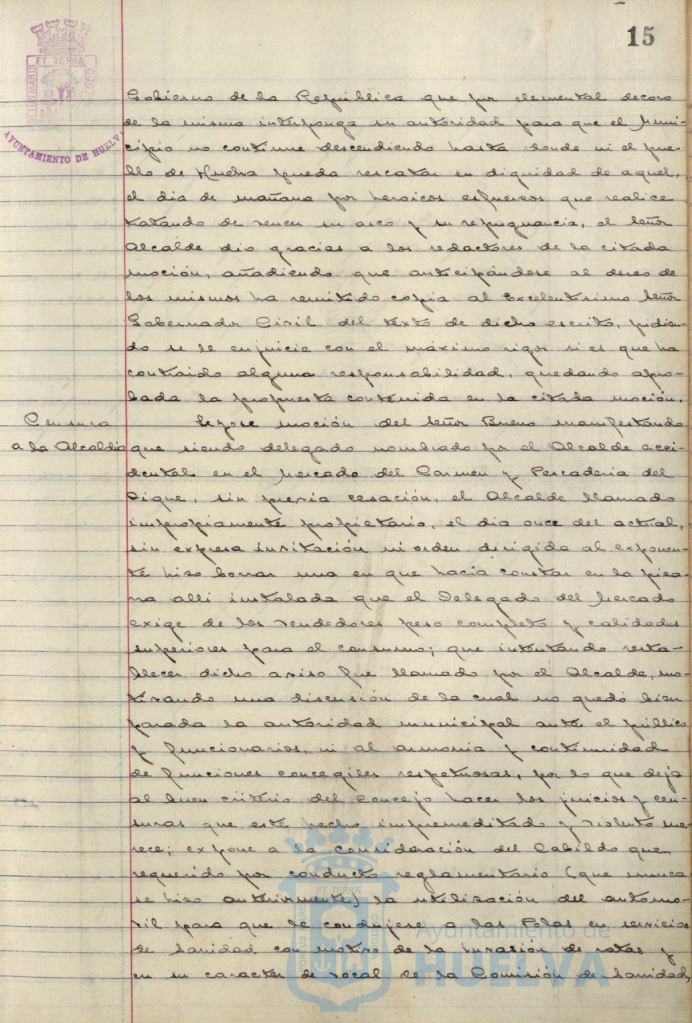 15
ET TERRÆ
AYUNTAMIENTO DE HUELVA
Gobierno de la República que por elemental decoro
de la misma interponga su autoridad para que el Muni-
cipio no continue descendiendo hasta donde ni el pue-
blo de Huelva pueda rescatar su dignidad de aquel,
el dia de mañana por heroicos esfuerzos que realice
tratando de vencer su asco y su repugnancia, el señor
Alcalde dio gracias a los redactores de la citada
moción, añadiendo que anticipándose al deseo de
los mismos ha remitido copia al Excelentisimo Señor
Gobernador Civil del texto de dicho escrito, pidien-
do se le enjuicie con el máximo rigor si es que ha
contraido alguna responsabilidad, quedando apro-
bada la propuesta contenida en la citada moción.
Censura
a la Alcaldia
Leyose moción del Señor Bueno manifestando
que siendo delegado nombrado por el Alcalde acci-
dental en el Mercado del Carmen y Pescaderia del
Dique, sin previa cesación, el Alcalde llamado
impropiamente propietario, el dia once del actual,
sin expresa invitación ni orden dirigida al exponen-
te hizo borrar una en que hacia constar en la pizar-
ra alli instalada que el Delegado del Mercado
exige de los vendedores peso completo y calidades
superiores para el consumo; que intentando resta-
blecer dicho aviso fue llamado por el Alcalde, mo-
tivando una discusión de la cual no quedó bien
parada la autoridad municipal ante el público
y funcionarios, ni al armonia y continuidad
de funciones concegiles respetuosas, por lo que deja
al buen criterio del Concejo hacer los juicios y cen-
suras que este hecho impremeditado y violento me-
rece; expone a la consideración del Cabildo que
requerido por conducto reglamentario (que nunca
se hizo anteriormente) la utilización del automo-
vil para que le condujese a las en servicios
de Sanidad con motivo de la invasión de ratas y
en su caracter de vocal de la Comisión de Sanidad,
ET TERRÆ
Ayuntamiento de
HUELVA